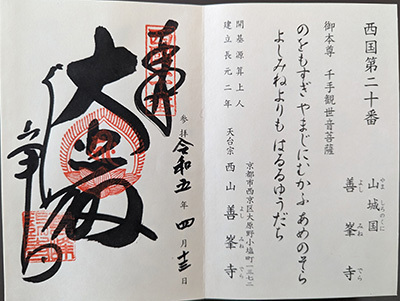 西国第二十番
山城国
やましろのくに
善峯寺
よしみねでら
御本尊 千手観世音菩薩
のをもすぎやまじにむかふあめのそら
よしみねよりもはるるゆうだち
開基源算上人
建立長元二年
京都市西京区大原野小塩町一三七二
天台宗 西山善峯寺
よしみねでら
奉拝
大悲殿
善峯寺
参拝 令和五年四月十三日